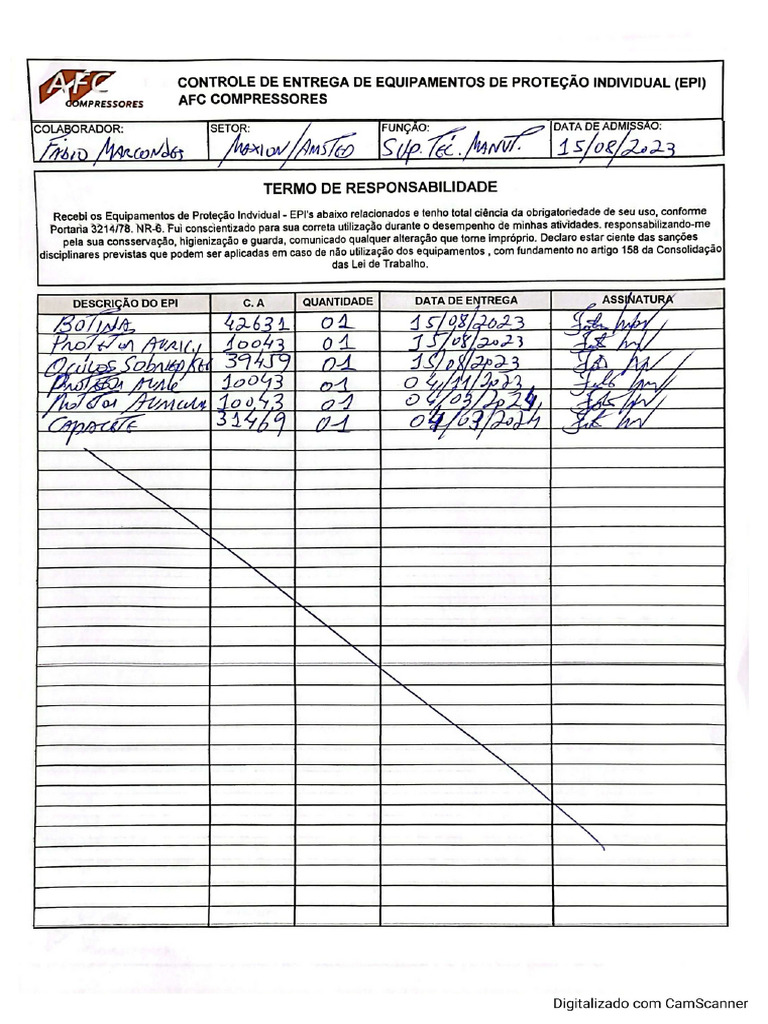 AFC
COMPRESSORES
CONTROLE DE ENTREGA DE EQUIPAMENTOS DE PROTEÇÃO INDIVIDUAL (EPI)
AFC COMPRESSORES
COLABORADOR: SETOR: FUNÇÃO: DATA DE ADMISSÃO:
FÁBIO MARCONDES MAXION/AMSTED SUP. TÉC. MANUT. 15/08/2023
TERMO DE RESPONSABILIDADE
Recebi os Equipamentos de Proteção Indvidual - EPI's abaixo relacionados e tenho total ciência da obrigatoriedade de seu uso, conforme
Portaria 3214/78. NR-6. Fui conscientizado para sua correta utilização durante o desempenho de minhas atividades. responsabilizando-me
pela sua consservação, higienização e guarda, comunicado qualquer alteração que torne impróprio. Declaro estar ciente das sanções
disciplinares previstas que podem ser aplicadas em caso de não utilização dos equipamentos , com fundamento no artigo 158 da Consolidação
das Lei de Trabalho.
DESCRIÇÃO DO EPI C. A QUANTIDADE DATA DE ENTREGA ASSINATURA
BOTINA 42631 01 15/08/2023
PROTETOR AURIC. 10043 01 15/08/2023
OCULOS 39459 01 15/08/2023
PROTETOR 10043 01 04/11/2023
PROTETOR AURICULAR 10043 01 04/03/2024
CAPACETE 31469 01 04/03/2024
Digitalizado com CamScanner